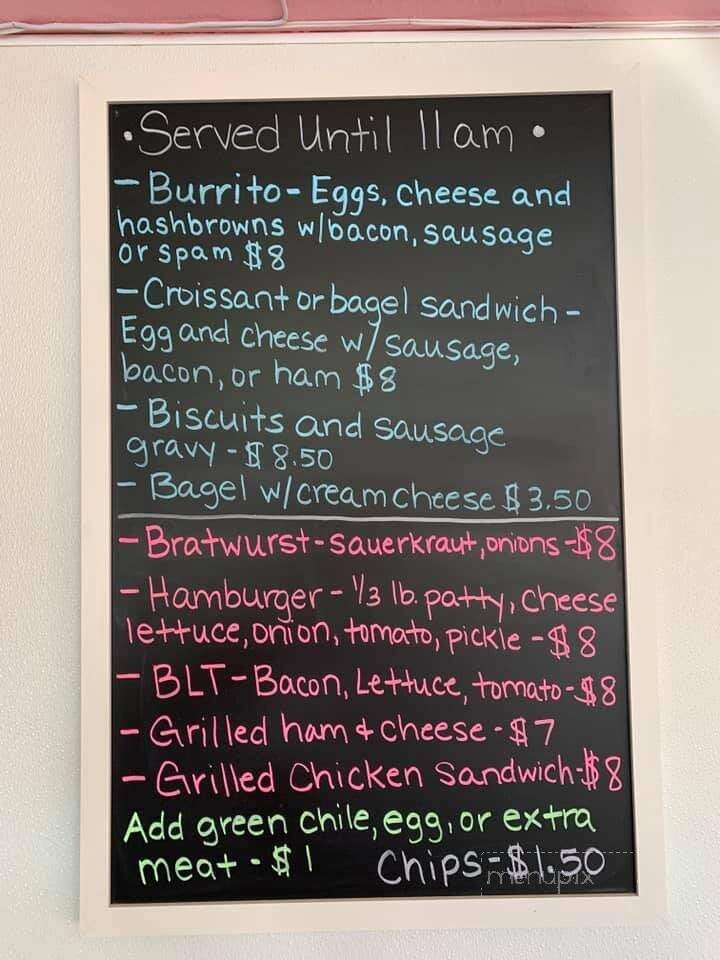 • Served Until 11am •
- Burrito - Eggs, cheese and
hashbrowns w/bacon, sausage
or spam $8
- Croissant or bagel sandwich -
Egg and cheese w/ sausage,
bacon, or ham $8
- Biscuits and sausage
gravy - $8.50
- Bagel w/cream cheese $3.50
- Bratwurst - sauerkraut, onions - $8
- Hamburger - 1/3 lb. patty, cheese
lettuce, onion, tomato, pickle - $8
- BLT - Bacon, Lettuce, tomato - $8
- Grilled ham & cheese - $7
- Grilled Chicken Sandwich - $8
Add green chile, egg, or extra
meat - $1 Chips - $1.50
menupix